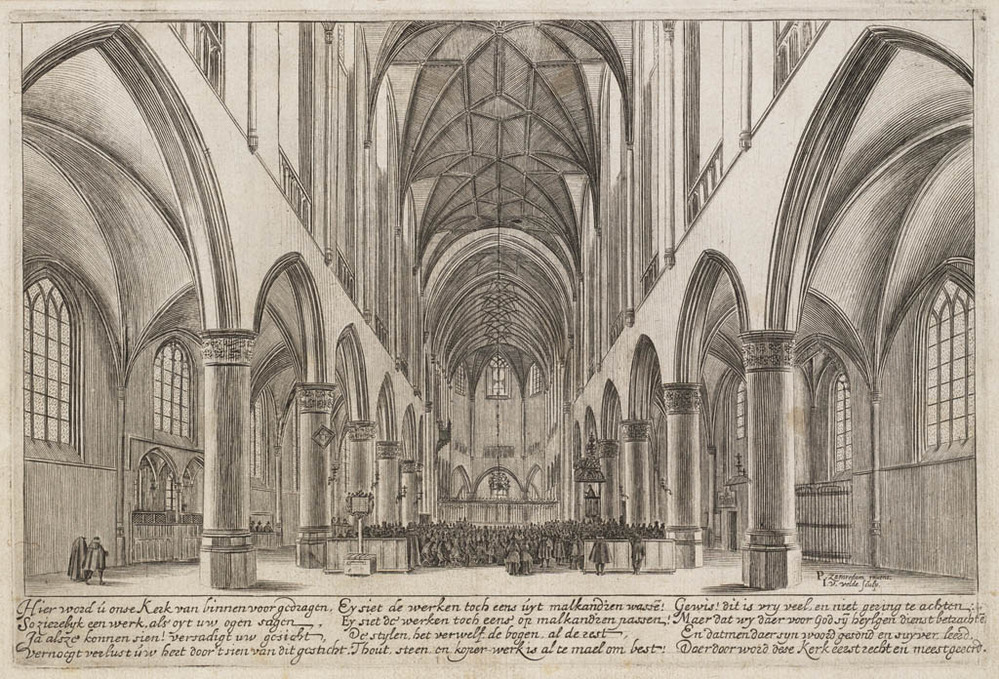 P. Zanredam invent.
I. V. Velde sculp.
Hier word ú onse Kerk van binnen voorgedragen, Ey siet de werken toch eens uyt malkandren wassē! Gewis! dit is vry veel, en niet gering te achten;
So zierelyk een werk, als oyt uw ogen sagen, Ey siet de werken toch eens op malkandren passen, Maer dat wy daer voor God sÿ heylgen dienst betrachtē
Ja alsze konnen sien! versadigt uw gesicht, De stylen, het verwelf, de bogen, al de rest, En datmen daer syn woord gesond en suyver leerd,
Vernoegt verlust úw hert door't sien van dit gesticht. Thout, steen, en koper-werk is al te mael om best! Daer door word dese Kerk eerst recht en meest geeerd.